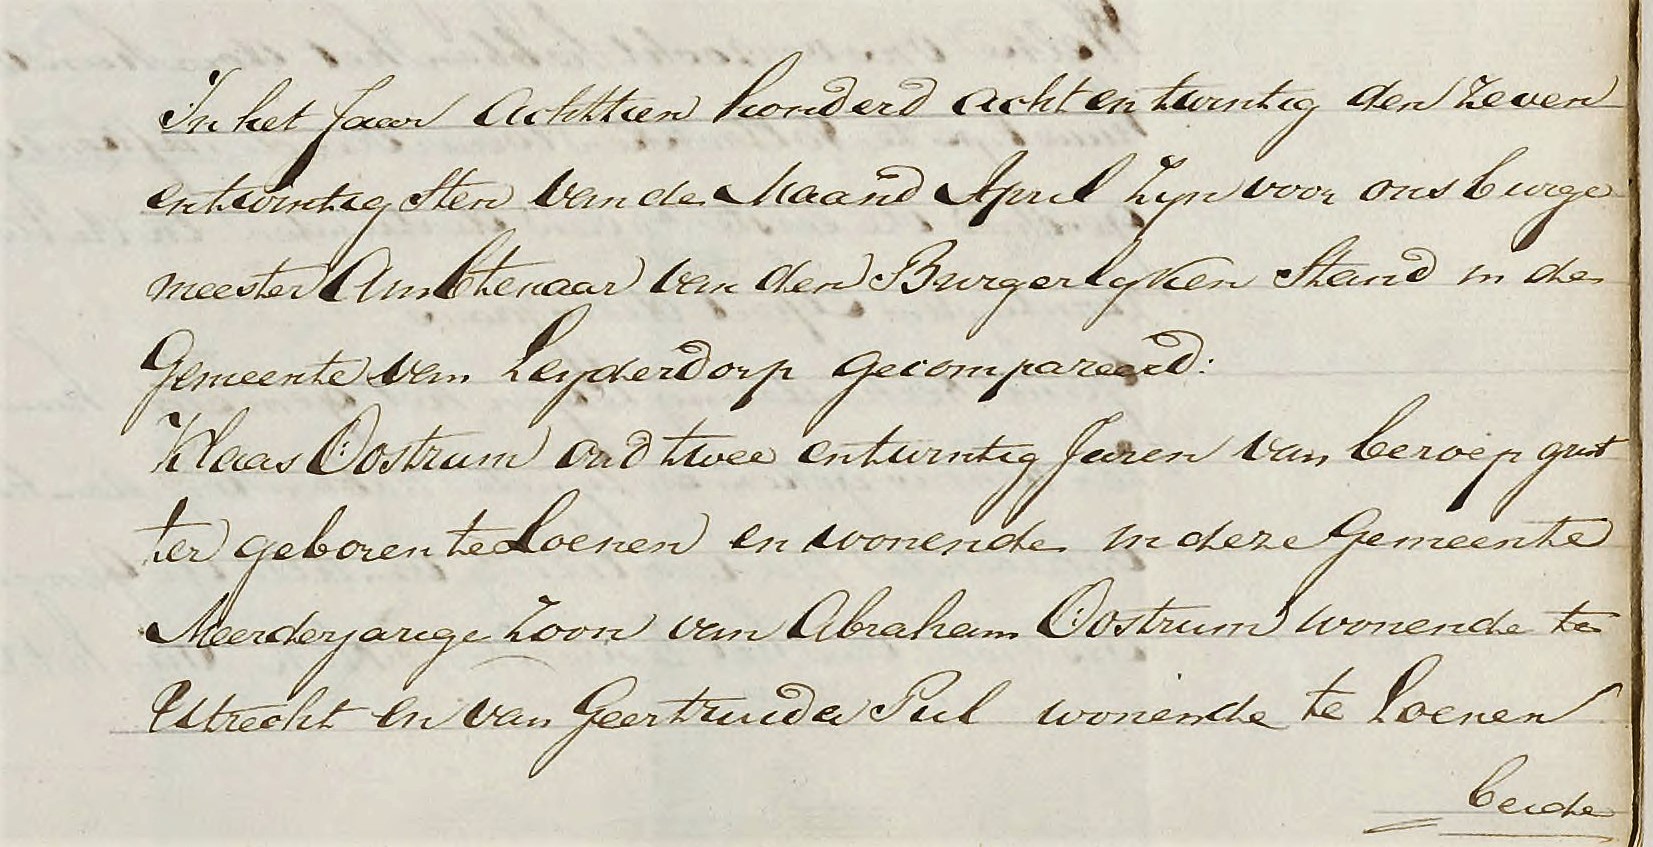 In het Jaar Achttien honderd acht en twintig den Zeven
entwintigsten van de Maand April Zyn voor ons burge
meester Ambtenaar van den Burgerlyken Stand in de
Gemeente van Leyderdorp gecompareerd:
Klaas Oostrum oud twee entwintig Jaren van beroep grut
ter geboren te Loenen en wonende in deze Gemeente
Meerderjarige Zoon van Abraham Oostrum wonende te
Utrecht en van Geertruida Pul wonende te Loenen
beide